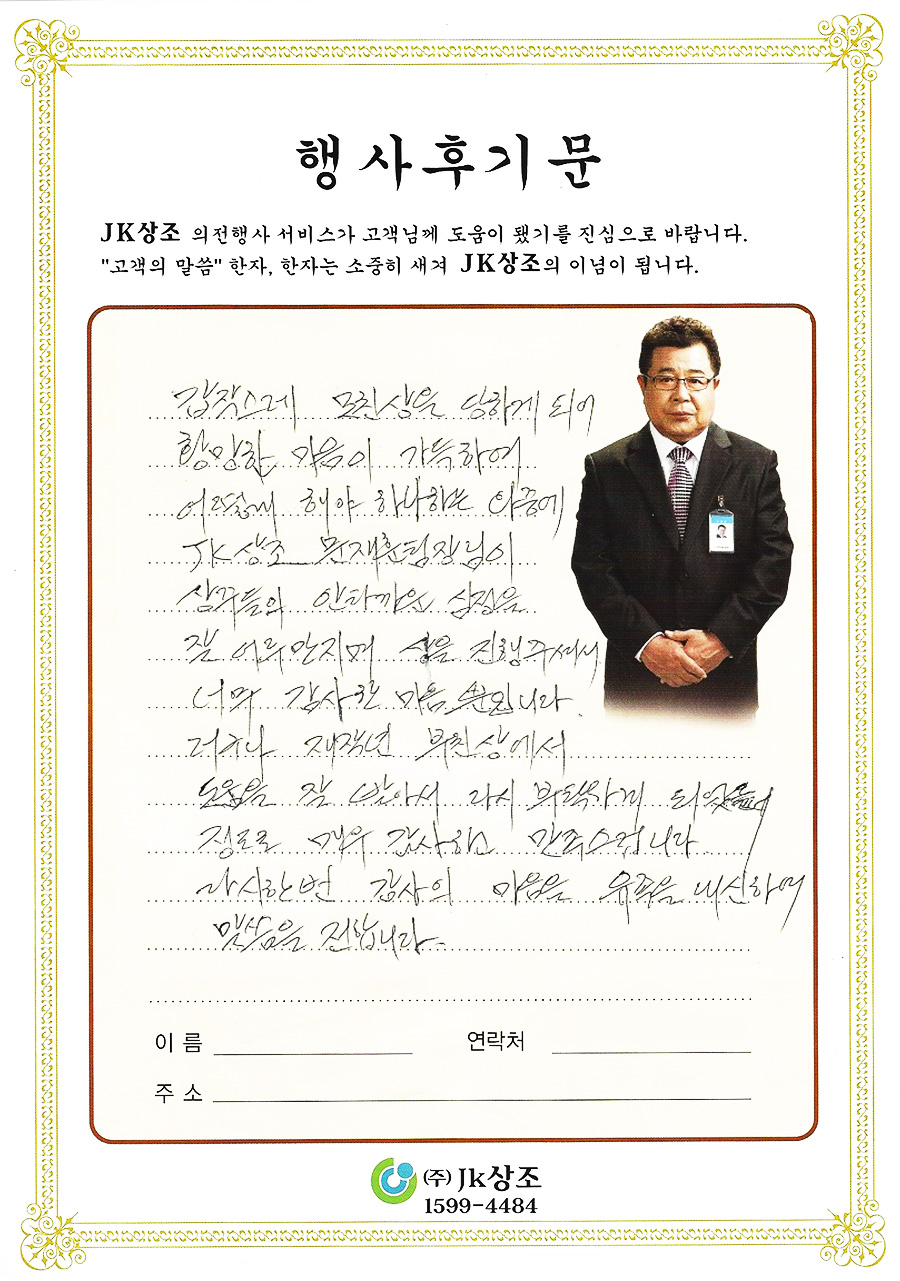 행사후기문
JK상조 의전행사 서비스가 고객님께 도움이 됐기를 진심으로 바랍니다.
"고객의 말씀" 한자, 한자는 소중히 새겨 JK상조의 이념이 됩니다.
갑작스레 모친상을 당하게 되어
황망한 마음이 가득하여
어떻게 해야 하나하는 와중에
JK상조 문재훈팀장님이
상주들의 안타까운 심정을
잘 어루만지며 상을 진행주셔서
너무 감사한 마음뿐입니다.
더구나 재작년 부친상에서
도움을 잘 받아서 다시 부탁하게 되었는데
정도로 매우 감사하고 만족스럽니다
다시한번 감사의 마음을 유족을 대신하여
말씀을 전합니다.
이 름 연락처
주 소
(주) Jk상조
1599-4484